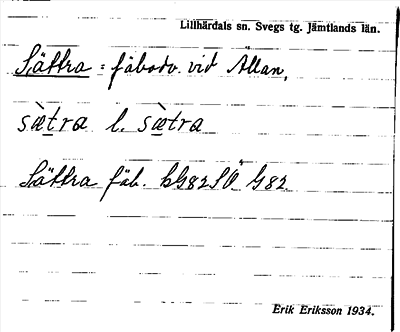 Lillhärdals sn. Svegs tg. Jämtlands län.
Sättra = fäbodv. vid Ällan,
sætra l. sætra
Sättra fäb. bG82SÖ G82
Erik Eriksson 1934.